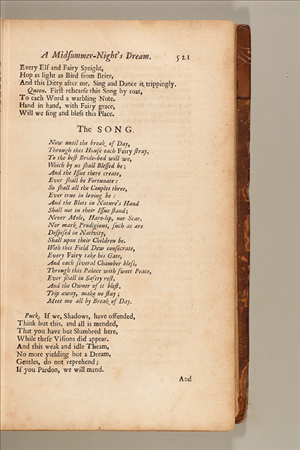 A Midsummer-Night's Dream. 521
Every Elf and Fairy Spright,
Hop as light as Bird from Brier,
And this Ditty after me, Sing and Dance it trippingly.
Queen. First rehearse this Song by roat,
To each Word a warbling Note.
Hand in hand, with Fairy grace,
Will we sing and bless this Place.
The SONG.
Now until the break of Day,
Through this House each Fairy stray,
To the best Bride-bed will we,
Which by us shall Blessed be;
And the Issue there create,
Ever shall be Fortunate:
So shall all the Couples three,
Ever true in loving be:
And the Blots in Nature's Hand
Shall not in their Issue stand;
Never Mole, Hare-lip, nor Scar,
Nor mark Prodigious, such as are
Despised in Nativity,
Shall upon their Children be.
With this Field Dew consecrate,
Every Fairy take his Gate,
And each several Chamber bless,
Through this Palace with sweet Peace,
Ever shall in Safety rest,
And the Owner of it blest,
Trip away, make no stay;
Meet me all by Break of Day.
Puck, If we, Shadows, have offended,
Think but this, and all is mended,
That you have but Slumbred here,
While these Visions did appear.
And this weak and idle Theam,
No more yielding but a Dream,
Gentles, do not reprehend;
If you Pardon, we will mend.
And